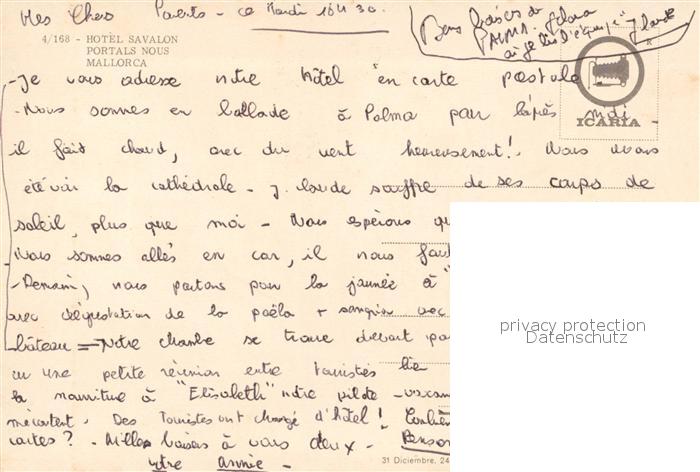 Mes Chers Parents - ce Mardi 16H30
Bons baisers de
PALMA.
J. Claude
4/168 - HOTEL SAVALON
PORTALS NOUS
MALLORCA
ICARIA
- Je vous adresse notre hôtel en carte postale
- Nous sommes en ballade à Palma pour l'après midi.
il fait chaud, avec du vent heureusement! Nous avons
été voir la cathédrale - J. Claude souffre de ses coups de
soleil, plus que moi - Nous espérons
Nous sommes allés en car, il nous faut
- Demain, nous partons pour la journée à "
avec dégustation de la paëla + sangria avec
bâteau = Notre chambre se trouve devant
eu une petite réunion entre touristes
la nourriture à "Elisabeth" notre pilote -
mécontent. Des Touristes ont changé d'hôtel!
cartes? - Milles baisers à vous deux -
privacy protection
Datenschutz
31 Diciembre, 24
votre Annie -